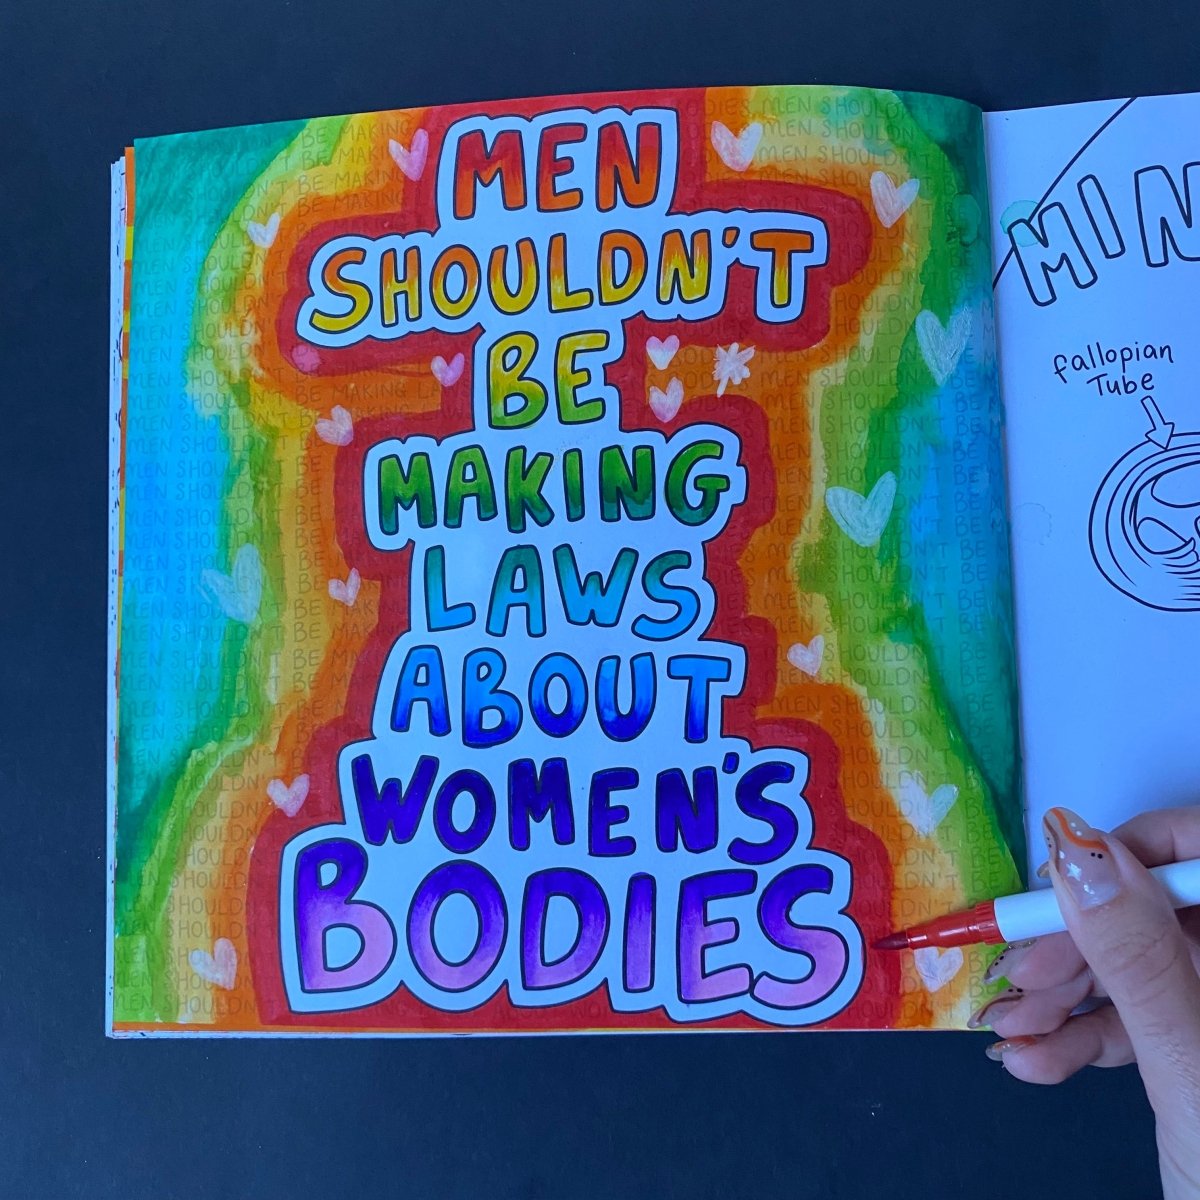 MEN
SHOULDN'T
BE
MAKING
LAWS
ABOUT
WOMEN'S
BODIES
MIN
fallopian
Tube